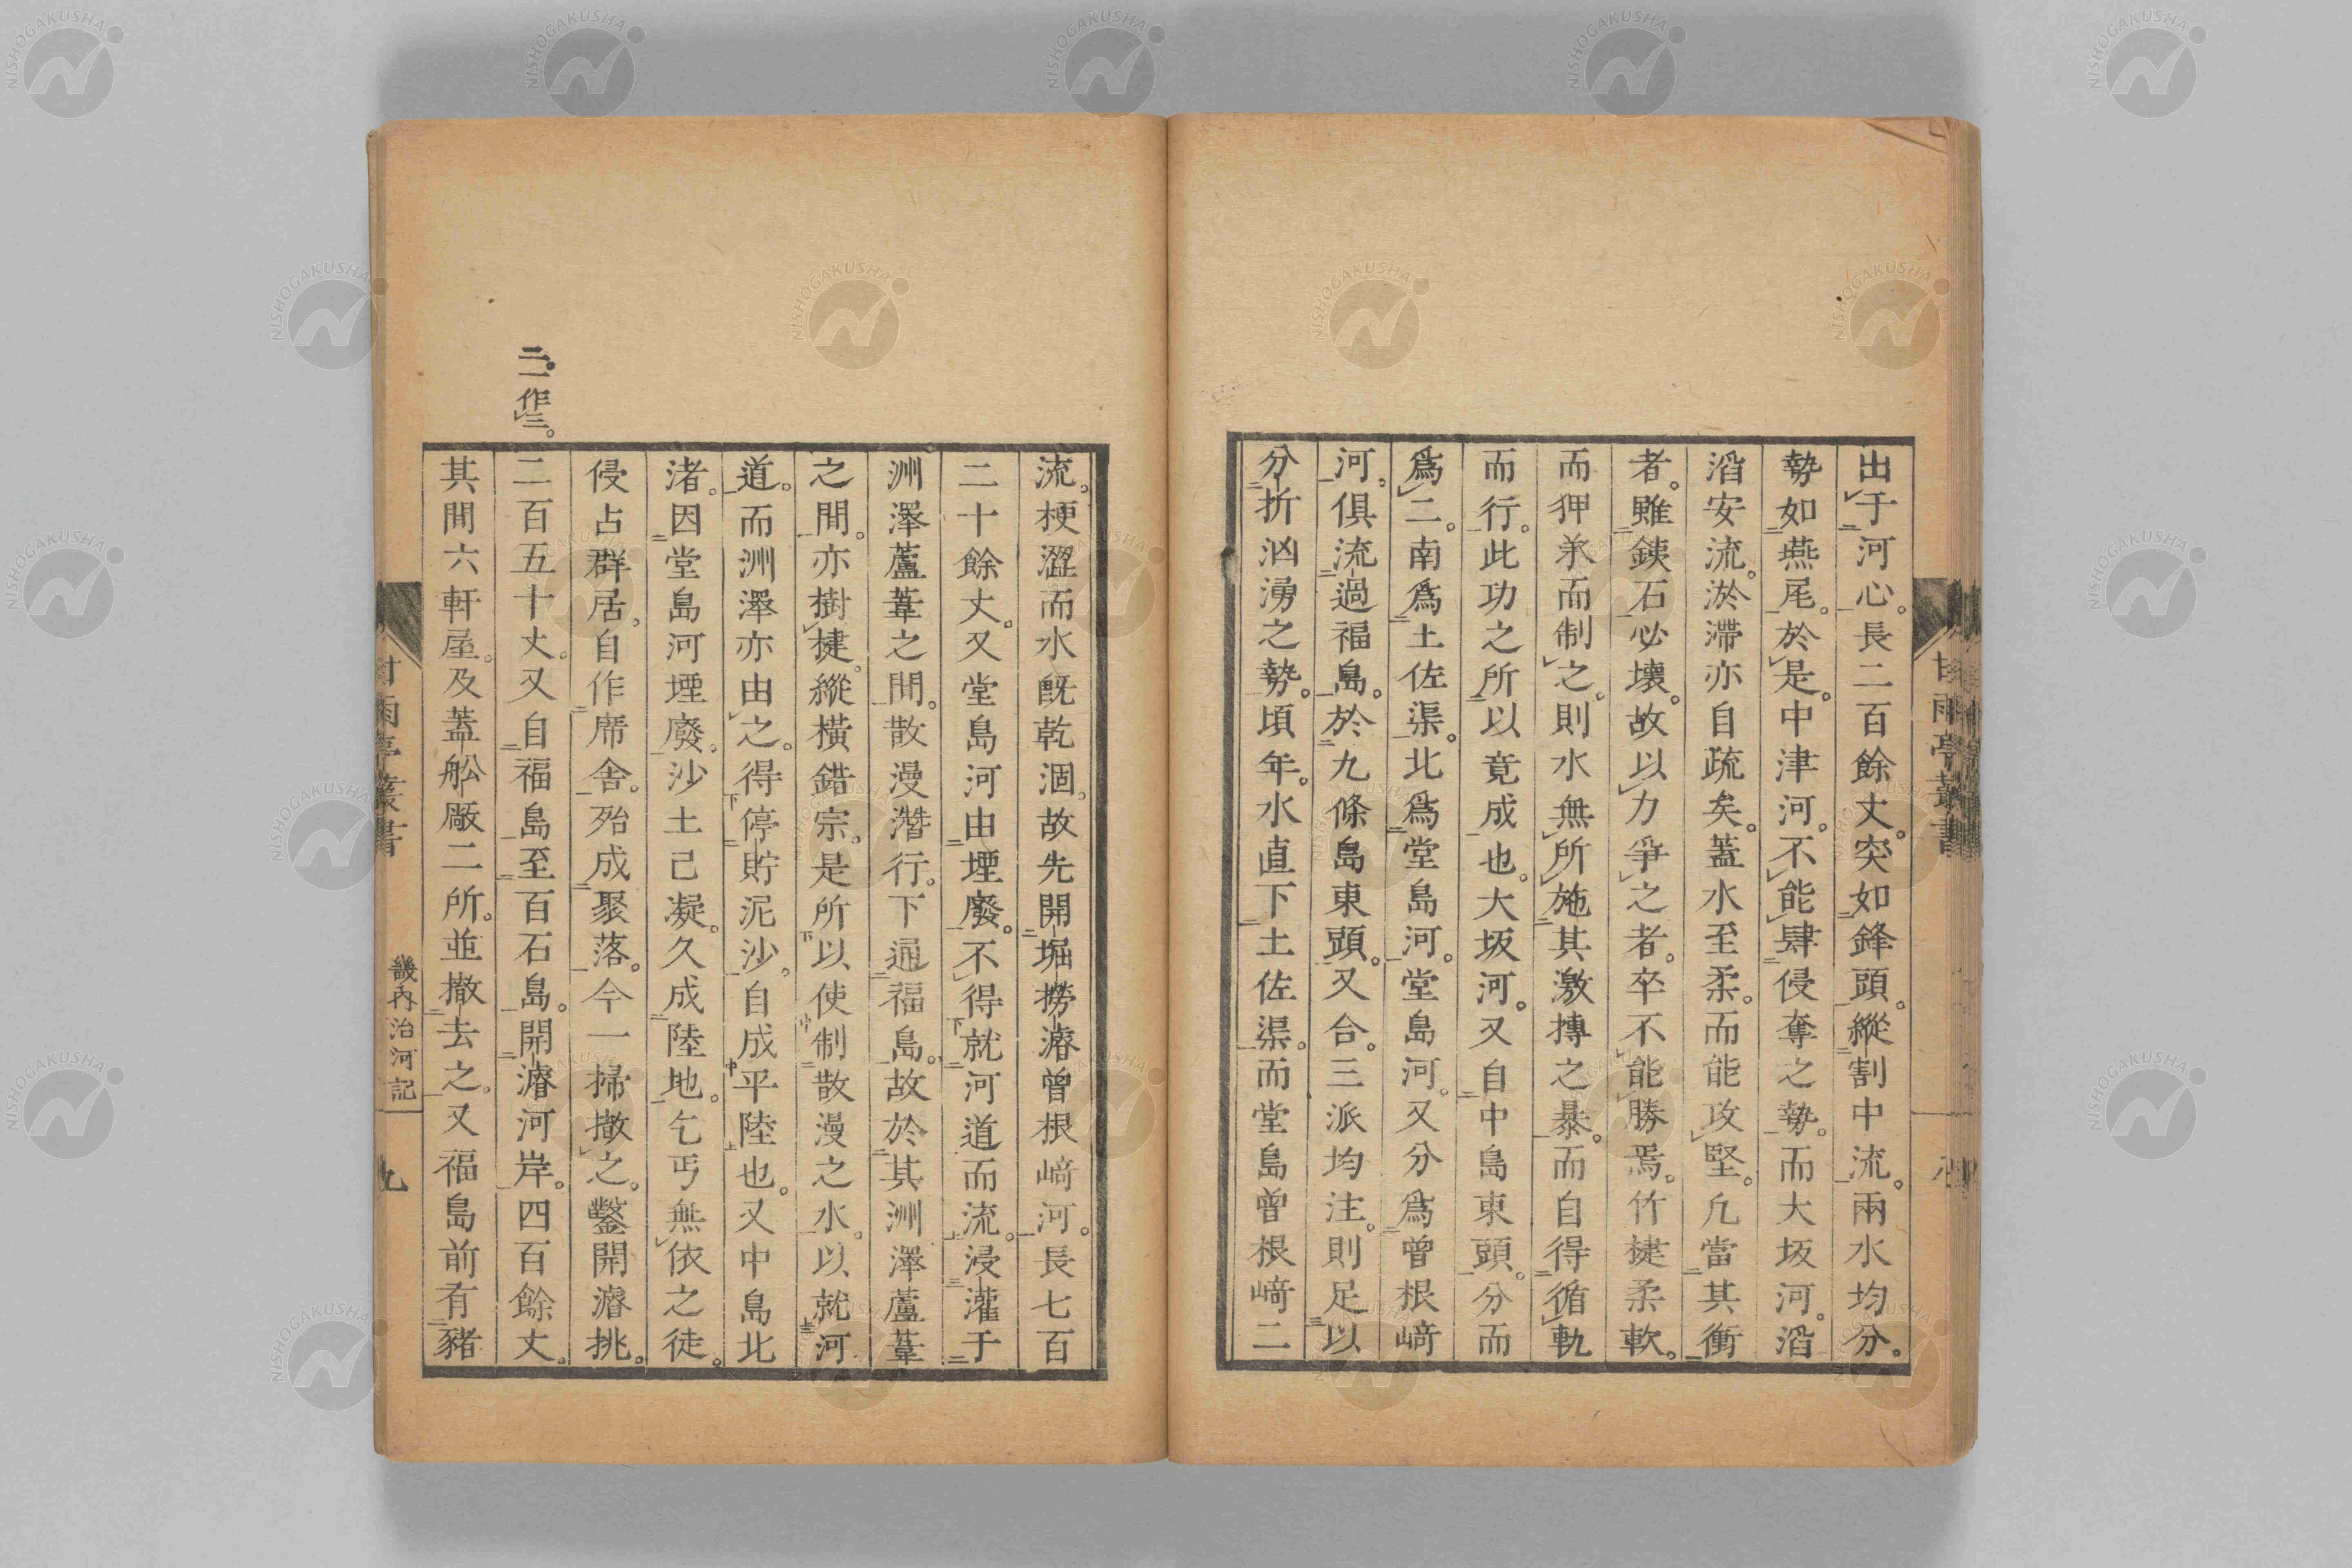 出于河心。長二百餘丈。突如鋒頭。縱割中流。兩水均分。
勢如燕尾。於是。中津河。不能肆侵奪之勢。而大坂河。滔
滔安流。淤滯亦自疏矣。蓋水至柔。而能攻堅。凡當其衝
者。雖鐵石必壞。故以力爭之者。卒不能勝焉。竹揵柔軟。
而狎案而制之。則水無所施其激摶之暴。而自得循軌
而行。此功之所以竟成也。大坂河。又自中島東頭。分而
爲二。南爲土佐渠。北爲堂島河。堂島河。又分爲曾根﨑
河。俱流過福島。於九條島東頭。又合。三派均注。則足以
分折洶湧之勢。頃年。水直下土佐渠。而堂島曾根﨑二
甘雨亭叢書
流。梗澀而水旣乾涸。故先開堀撈濬曾根﨑河。長七百
二十餘丈。又堂島河由堙廢。不得就河道而流。浸灌于
洲澤蘆葦之間。散漫潛行。下通福島。故於其洲澤蘆葦
之間。亦樹揵。縱橫錯宗。是所以使制散漫之水。以就河
道。而洲澤亦由之。得停貯泥沙。自成平陸也。又中島北
渚。因堂島河堙廢。沙土已凝。久成陸地。乞丐無依之徒。
侵占群居。自作席舍。殆成聚落。今一掃撤之。鑿開濬挑。
二百五十丈。又自福島至百石島。開濬河岸。四百餘丈。
其間六軒屋。及蓋舩廠二所。並撤去之。又福島前有豬
二。一作三。
甘雨亭叢書
畿內治河記
九